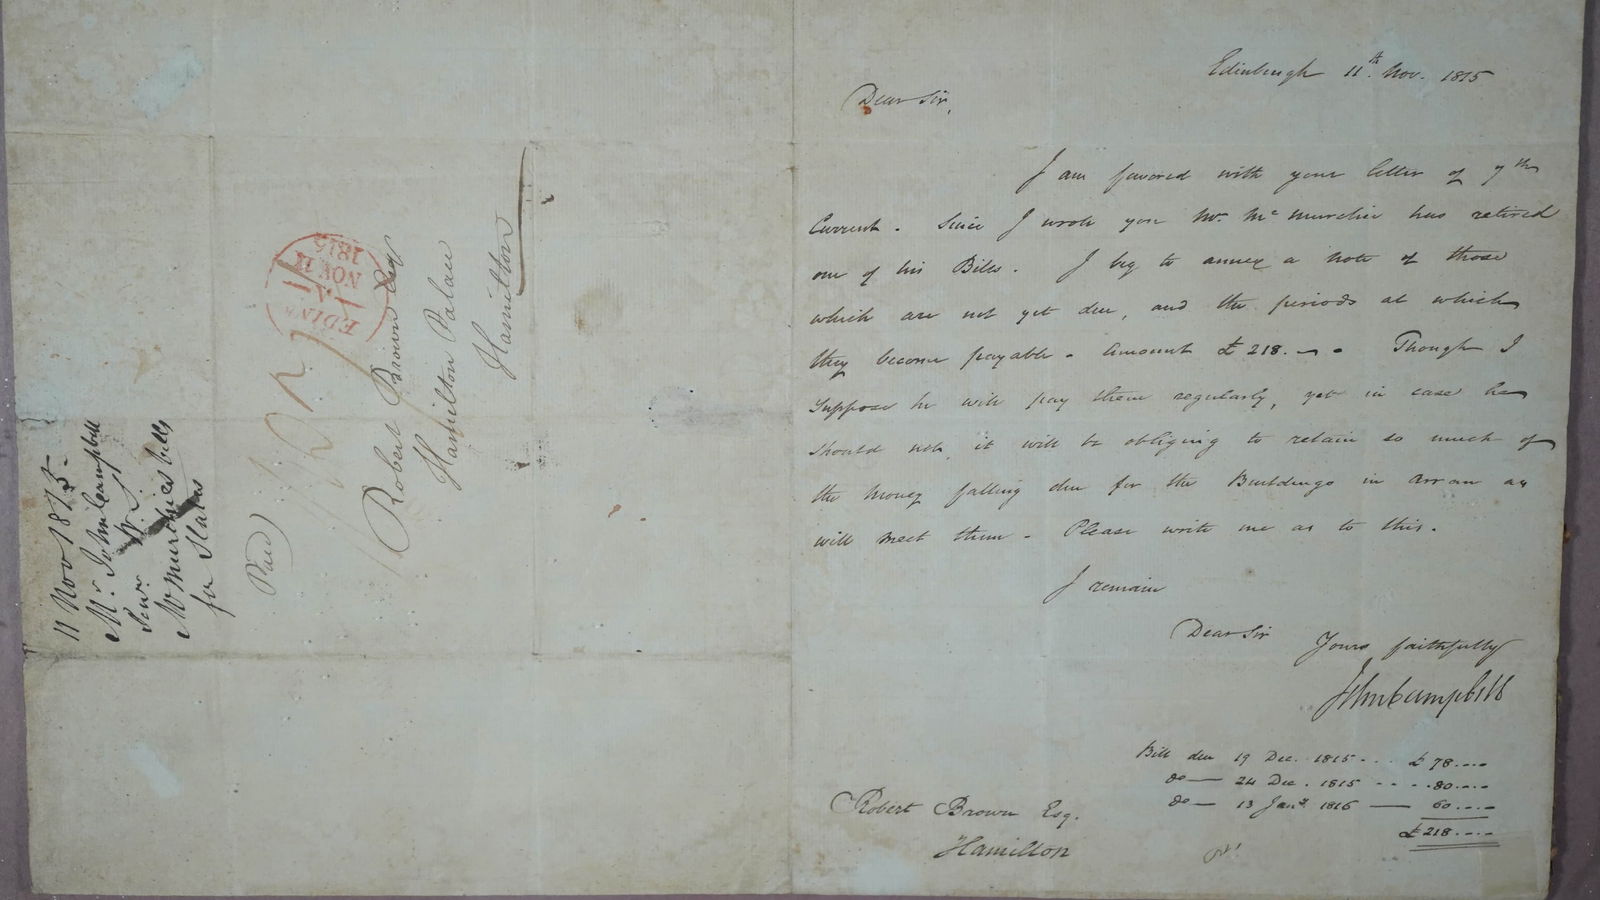 Edinburgh 11th. Nov. 1815
Dear Sir,
I am favored with your letter of 7th
Current. Since I wrote you Mr. McMurchie has retired
one of his Bills. I beg to annex a note of those
which are not yet due, and the periods at which
they become payable. Amount £218.--. Though I
suppose he will pay them regularly, yet in case he
should not, it will be obliging to retain so much of
the money falling due for the Buildings in Arran as
will meet them. Please write me as to this.
I remain
Dear Sir
Yours faithfully
John Campbell
Bill due 19 Dec. 1815 - - - £78.---
do — 24 Dec. 1815 - - - 80.---
do — 13 Jany. 1816 — 60.---
£218.---
Robert Brown Esq.
Hamilton
EDINR
A
NOV 11
1815
Robert Brown Esq
Hamilton Palace
Hamilton
Paid
11 Nov 1815.
Mr. John Campbell
Senr.
McMurchies bills
for Slates